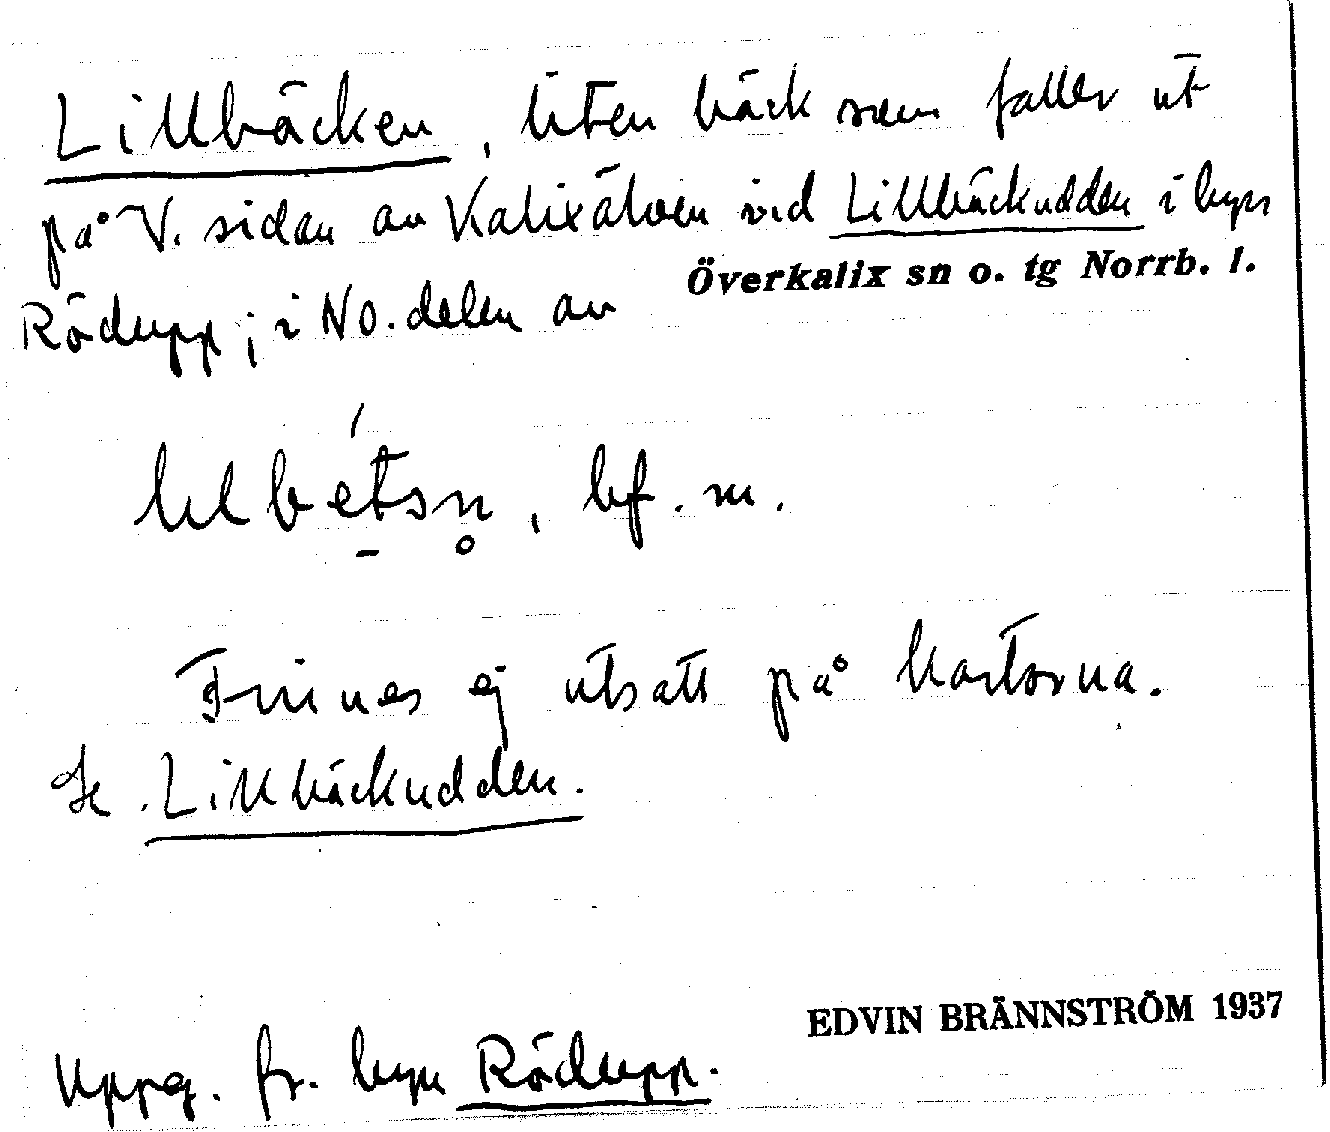 Lillbäcken, liten bäck som faller ut
på V. sidan av Kalixälven vid Lillbäckudden i byn
Rödupp; i NO. delen av Överkalix sn o. tg Norrb. l.
bf. m.
Finnes ej utsatt på kartorna.
Se. Lillbäckudden.
EDVIN BRÄNNSTRÖM 1937
Uppg. fr. byn Rödupp.